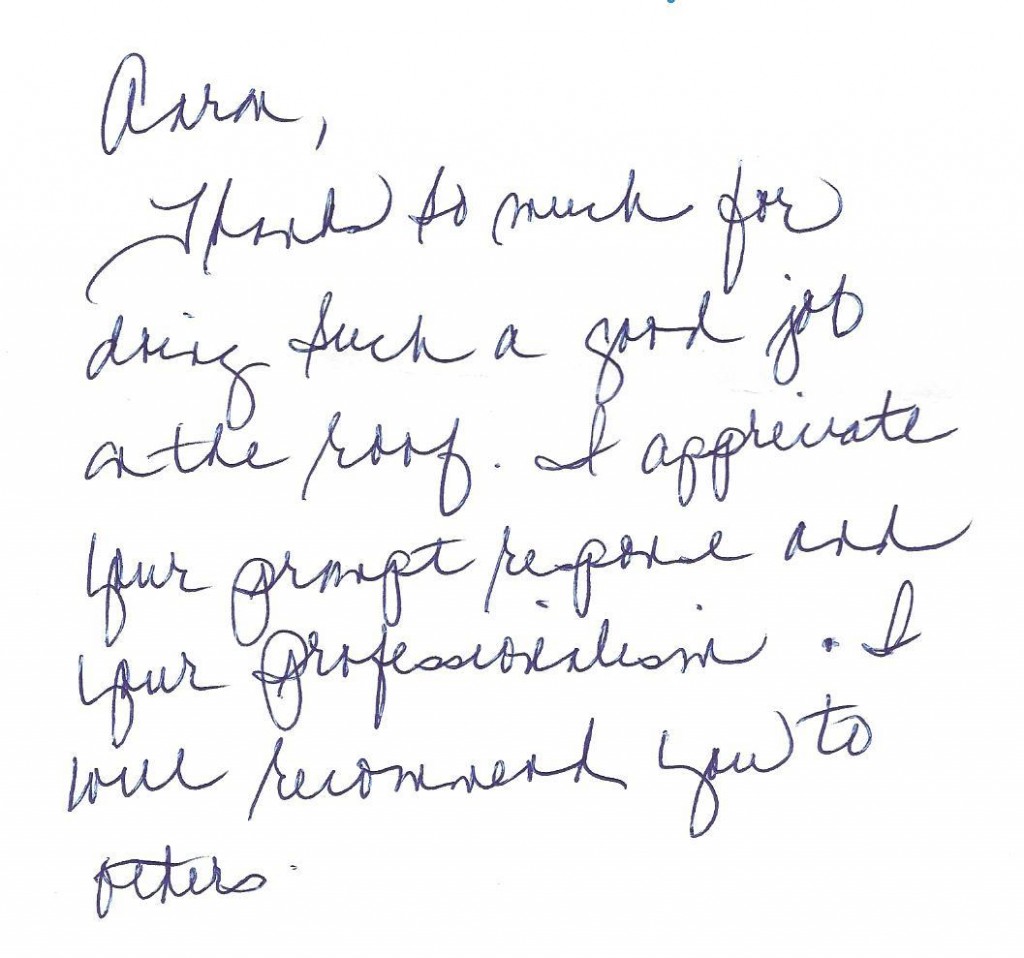 Aaron,
Thanks so much for
doing such a good job
on the roof. I appreciate
your prompt response and
your professionalism. I
will recommend you to
others.